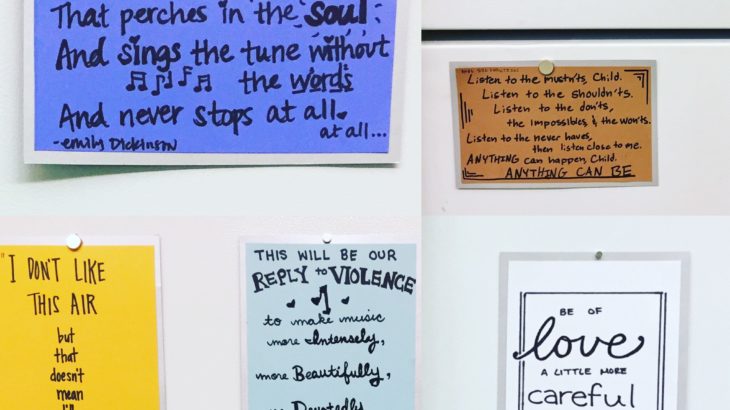 That perches in the Soul.
And sings the tune without
the words
And never stops at all
at all...
-emily Dickinson
Listen to the mustn'ts, Child.
Listen to the shouldn'ts.
Listen to the don'ts,
the impossibles & the won'ts.
Listen to the never haves,
then listen close to me.
ANYTHING can happen, Child.
ANYTHING CAN BE
"I DON'T LIKE
THIS AIR
but
that
doesn't
mean
THIS WILL BE OUR
REPLY to VIOLENCE
to make music
more Intensely,
more Beautifully,
Devotedly
BE OF
love
A LITTLE MORE
careful